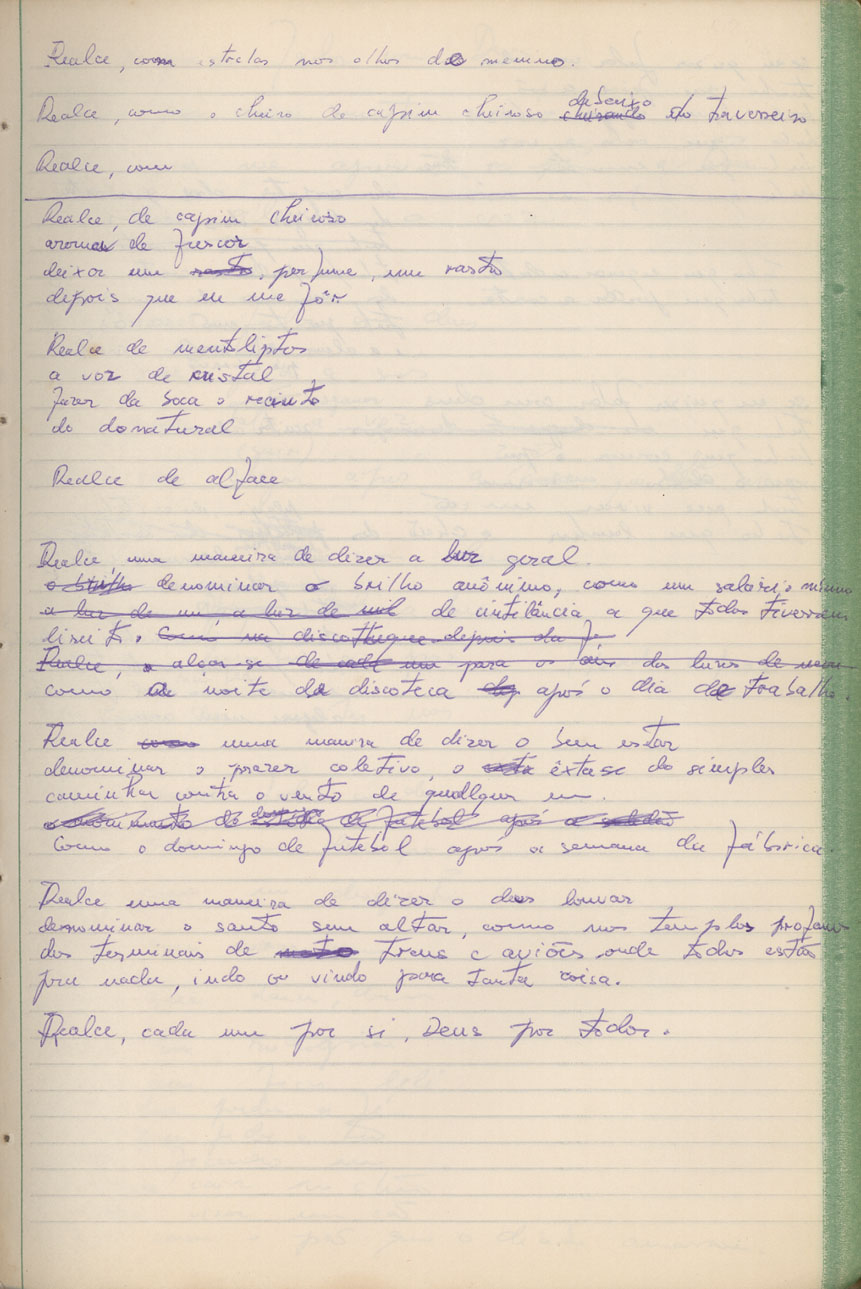 Realce, com estrelas nos olhos do menino.
Realce, como o cheiro de capim cheiroso debaixo do travesseiro
Realce, com
Realce, de capim cheiroso
aroma de frescor
deixar um rasto, perfume, um rasto
depois que eu me fôr
Realce de mentoliptos
a voz de cristal
fazer da boca o recinto
do donatural
Realce de alface
Realce, uma maneira de dizer a luz geral.
o brilho denominar o brilho anônimo, como um salário mínimo
a luz de um, a luz de mil de cintilância a que todos tivessem
Como na discotheque depois da
Realce, a alçar-se de cada um para os das luzes de
como a noite de discoteca após o dia de trabalho.
Realce como uma maneira de dizer o bem estar
denominar o prazer coletivo, o êxtase do simples
caminhar contra o vento de qualquer um.
de futebol após a
Como o domingo de futebol após a semana da fábrica.
Realce uma maneira de dizer o deus louvar
denominar o santo sem altar, como nos templos profanos
dos terminais de trens e aviões onde todos estão
pra nada, indo ou vindo para tanta coisa.
Realce, cada um por si, Deus por todos.